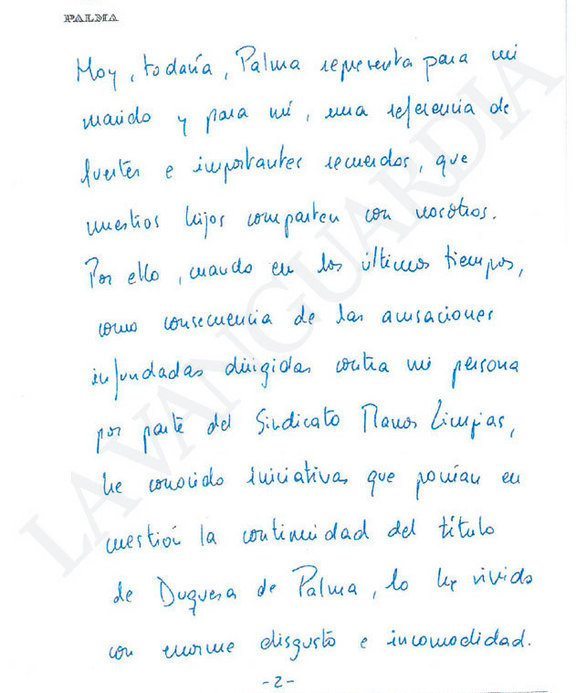 PALMA
Hoy, todavía, Palma representa para mi
marido y para mí, una referencia de
fuertes e importantes recuerdos, que
nuestros hijos comparten con nosotros.
Por ello, cuando en los últimos tiempos,
como consecuencia de las acusaciones
infundadas dirigidas contra mi persona
por parte del Sindicato Manos Limpias,
he conocido iniciativas que ponían en
cuestión la continuidad del título
de Duquesa de Palma, lo he vivido
con enorme disgusto e incomodidad.
-2-
LA VANGUARDIA